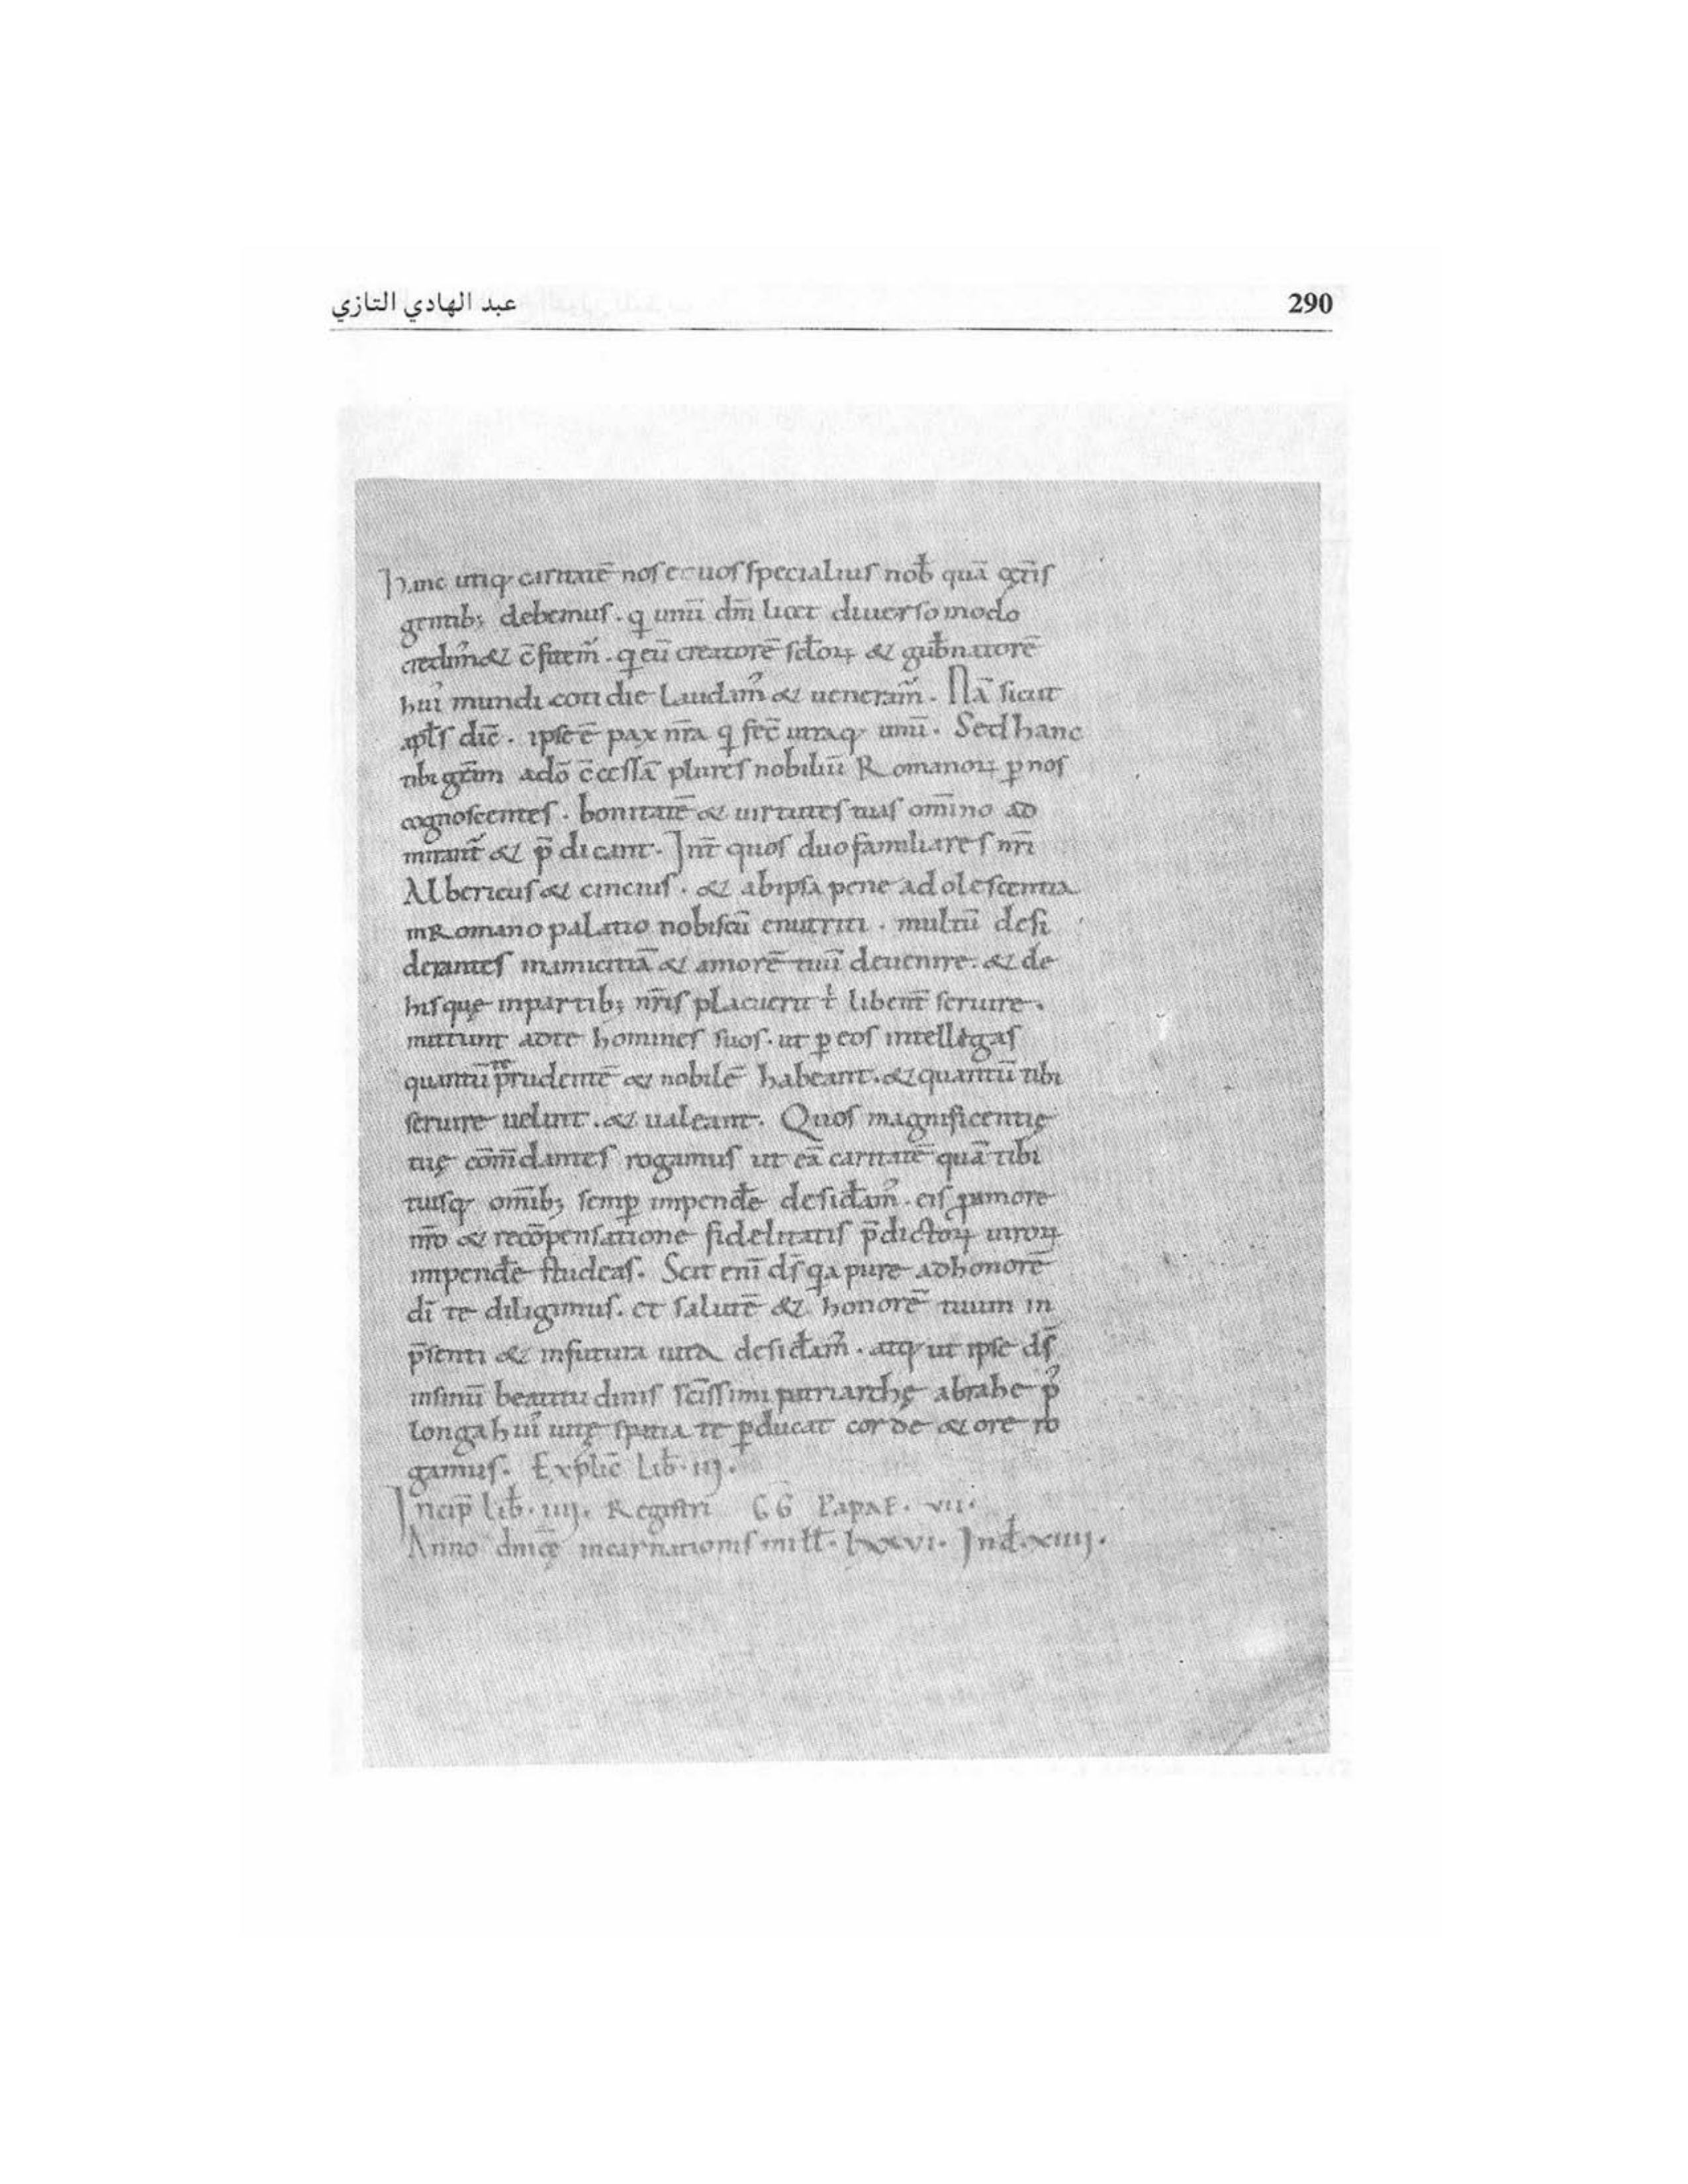 عبد الهادي التازي 290
Hanc utiq; caritatē nos & uos specialius nob̄ quā cet̄is
gentib; debemus. q unū dm̄ licet diuerso modo
credim᾽ & c̄fitem᷒. q eū creatorē sc̄loꝝ & gub̄natorē
hui᾽ mundi cotidie laudam᾽ & ueneram᷒. Nā sicut
apl̄s dic̄. ipse ē pax nr̄a q fec̄ utraq; unū. Sed hanc
tibi gr̄am a dō c̄cessā plures nobiliū Romanoꝝ ꝑ nos
cognoscentes. bonitatē & uirtutes tuas om̄ino ad
mirant᷒ & p̄dicant. Int̄ quos duo familiares nr̄i
Albericus & cincius. & ab ipsa pene adolescentia
in Romano palatio nobiscū enutriti. multū desi
derantes in amicitiā & amorē tuū deuenire. & de
his quę in partib; nr̄is placuerit t̄ libent̄ seruire.
mittunt ad te homines suos. ut ꝑ eos intellegas
quantū te prudentē & nobilē habeant. & quantū tibi
seruire uelint. & ualeant. Quos magnificentię
tuę com̄dantes rogamus ut eā caritatē quā tibi
tuisq; om̄ib; semꝑ impend̄e desid̄am᾽. eis ꝓ amore
nr̄o & recōpensatione fidelitatis p̄dictoꝝ uiroꝝ
impend̄e studeas. Scit enī ds̄ qa pure ad honorē
dī te diligimus. et salutē & honorē tuum in
p̄senti & in futura uita desid̄am᾽. atq; ut ipse ds̄
in sinū beatitudinis sc̄issimi patriarchę abrahe p᾽
longa hui᾽ uitę spatia te ꝑducat corde & ore ro
gamus. Explic̄ Lib̄. iij.
Incip̄ lib̄. iiij. Registri GG Papae. vii.
Anno dn̄icę incarnationis mill̄. lxxvi. Ind̄. xiiij.